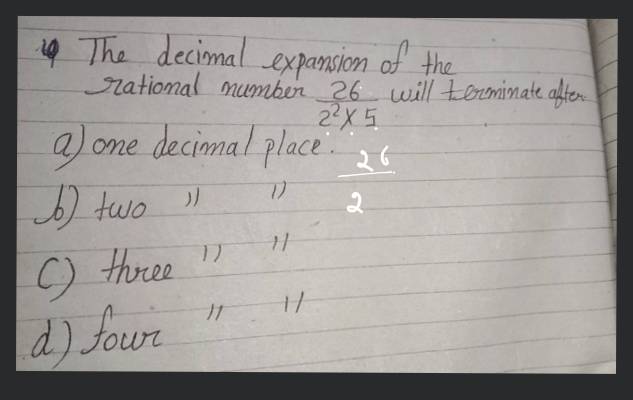 The decimal expansion of the
rational number 26/2²×5 will terminate after
a) one decimal place.
26/2
b) two " "
c) three " "
d) four " "